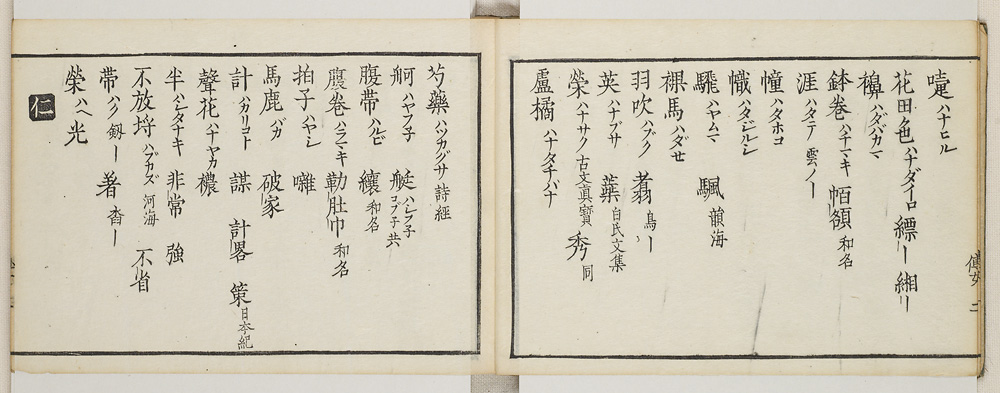 嚏 ハナヒル
花田色 ハナダイロ 縹ー 緗リ
襣 ハダバカマ
鉢巻 ハチマキ 帞額 和名
涯 ハタテ 雲ノー
幢 ハタホコ
幟 ハタジルシ
駻 ハヤムマ 颿 韻海
裸馬 ハダセ
羽吹 ハブク 翥 鳥ー
英 ハナブサ 蕐 白氏文集
榮 ハナサク 古文眞寶 秀 同
盧橘 ハナタチバナ
芍藥 ハツカグサ 詩經
舸 ハヤフ子 艇 ハシフ子 コブ子 共
腹帶 ハルビ 纕 和名
腹卷 ハラマキ 勒肚巾 和名
拍子 ハヤシ 囃
馬鹿 バカ 破家
計 ハカリコト 謀 計畧 策 日本紀
聲花 ハナヤカ 穠
半 ハシタナキ 非常 強
不放埒 ハブカズ 河海 不省
帶 ハク 釼ー 著 沓ー
榮 ハヘ 光
仁